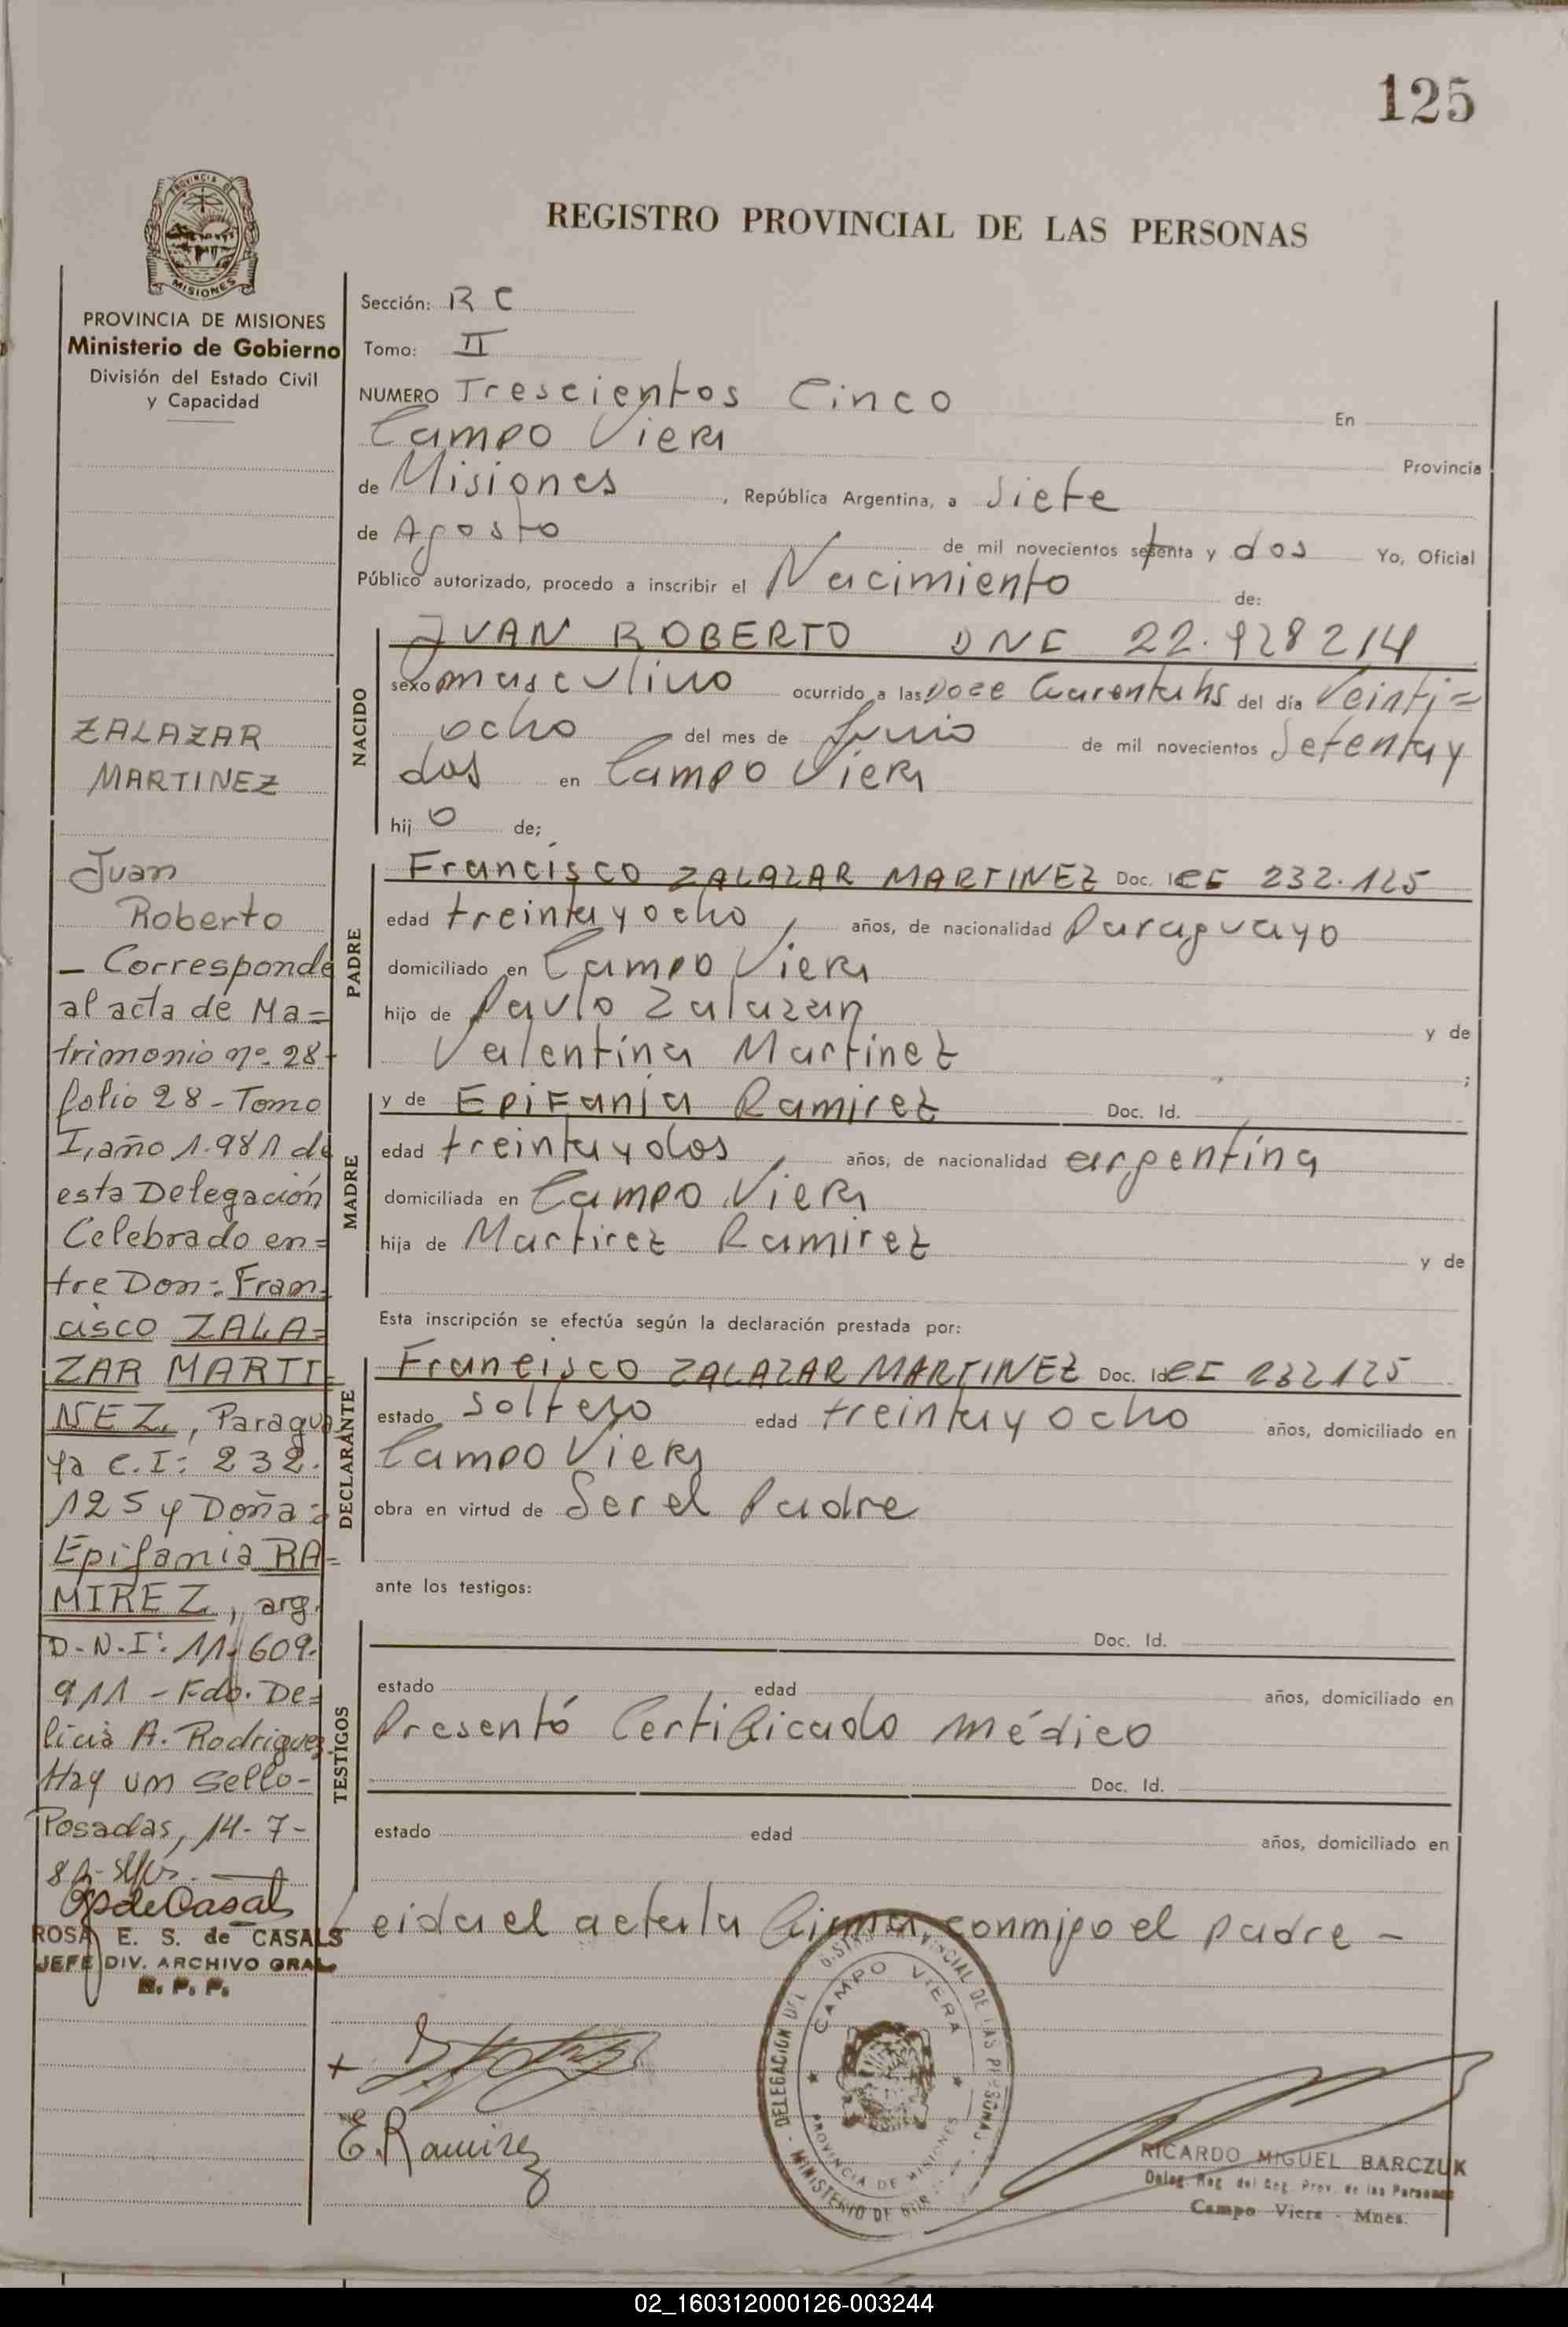 125
REGISTRO PROVINCIAL DE LAS PERSONAS
PROVINCIA DE MISIONES
Ministerio de Gobierno
División del Estado Civil
y Capacidad
ZALAZAR
MARTINEZ
Juan
Roberto
— Corresponde
al acta de Ma=
trimonio nº. 28-
folio 28 - Tomo
I, año 1.981 de
esta Delegación
Celebrado en=
tre Don: Fran=
cisco ZALA=
ZAR MARTI=
NEZ, Paragua
ya C.I: 232.
125 y Doña =
Epifania RA=
MIREZ, arg.
D-N-I: 11.609.
911 - Fdo. De=
licia A. Rodriguez
Hay un sello-
Posadas, 14-7-
ROSA E. S. de CASALS
JEFE DIV. ARCHIVO GRAL.
R. P. P.
Sección: R C
Tomo: II
NUMERO Trescientos Cinco En
Campo Viera Provincia
de Misiones, República Argentina, a Siete
de Agosto de mil novecientos setenta y dos Yo, Oficial
Público autorizado, procedo a inscribir el Nacimiento de:
NACIDO
JUAN ROBERTO DNI 22.928214
sexo masculino ocurrido a las Doce Cuarenta hs del día Veinti=
ocho del mes de Junio de mil novecientos Setenta y
dos en Campo Viera
hij o de;
PADRE
Francisco ZALAZAR MARTINEZ Doc. Id CI 232.125
edad treinta y ocho, años, de nacionalidad Paraguayo
domiciliado en Campo Viera
hijo de Paulo Zalazar y de
Valentina Martinez ;
MADRE
y de Epifania Ramirez Doc. Id.
edad treinta y dos, años, de nacionalidad argentina
domiciliada en Campo Viera
hija de Martirez Ramirez y de
Esta inscripción se efectúa según la declaración prestada por:
DECLARANTE
Francisco ZALAZAR MARTINEZ Doc. Id CI 232125
estado Soltero edad treinta y ocho años, domiciliado en
Campo Viera
obra en virtud de Ser el Padre
ante los testigos:
TESTIGOS
Doc. Id.
estado edad años, domiciliado en
Presentó Certificado Médico
Doc. Id.
estado edad años, domiciliado en
Leida el acta la firma conmigo el padre —
E. Ramirez
DELEGACION DEL REGISTRO PROVINCIAL DE LAS PERSONAS
CAMPO VIERA
PROVINCIA DE MISIONES
MINISTERIO DE GOB
RICARDO MIGUEL BARCZUK
Deleg. Reg. del Reg. Prov. de las Personas
Campo Viera - Mnes.
02_160312000126-003244